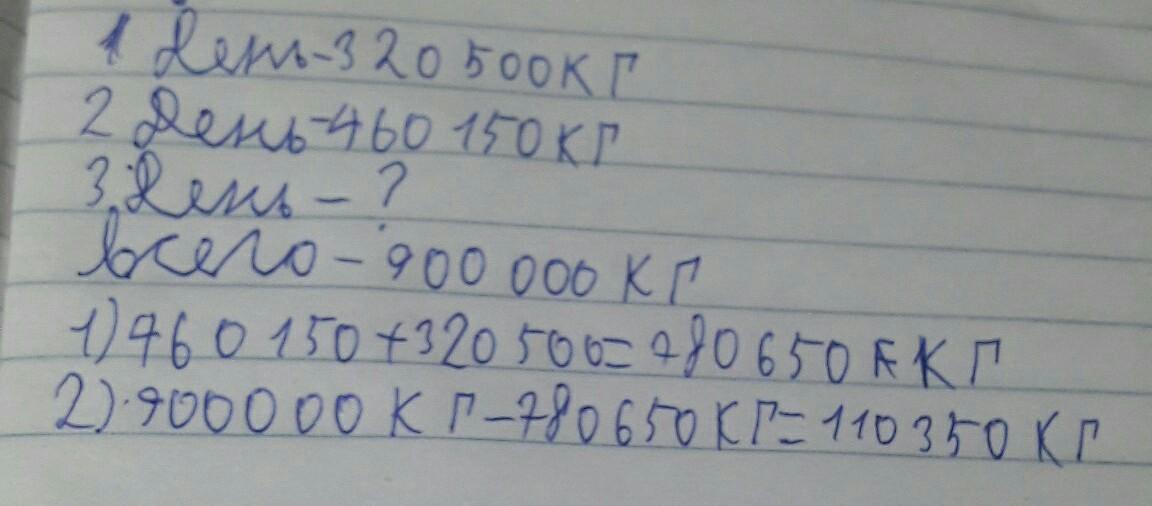 1 День-320 500КГ
2 День-460 150КГ
3.День - ?
всего - 900 000 КГ
1) 460 150+320 500=780 650 КГ
2) 900000 КГ-780650КГ=110350 КГ